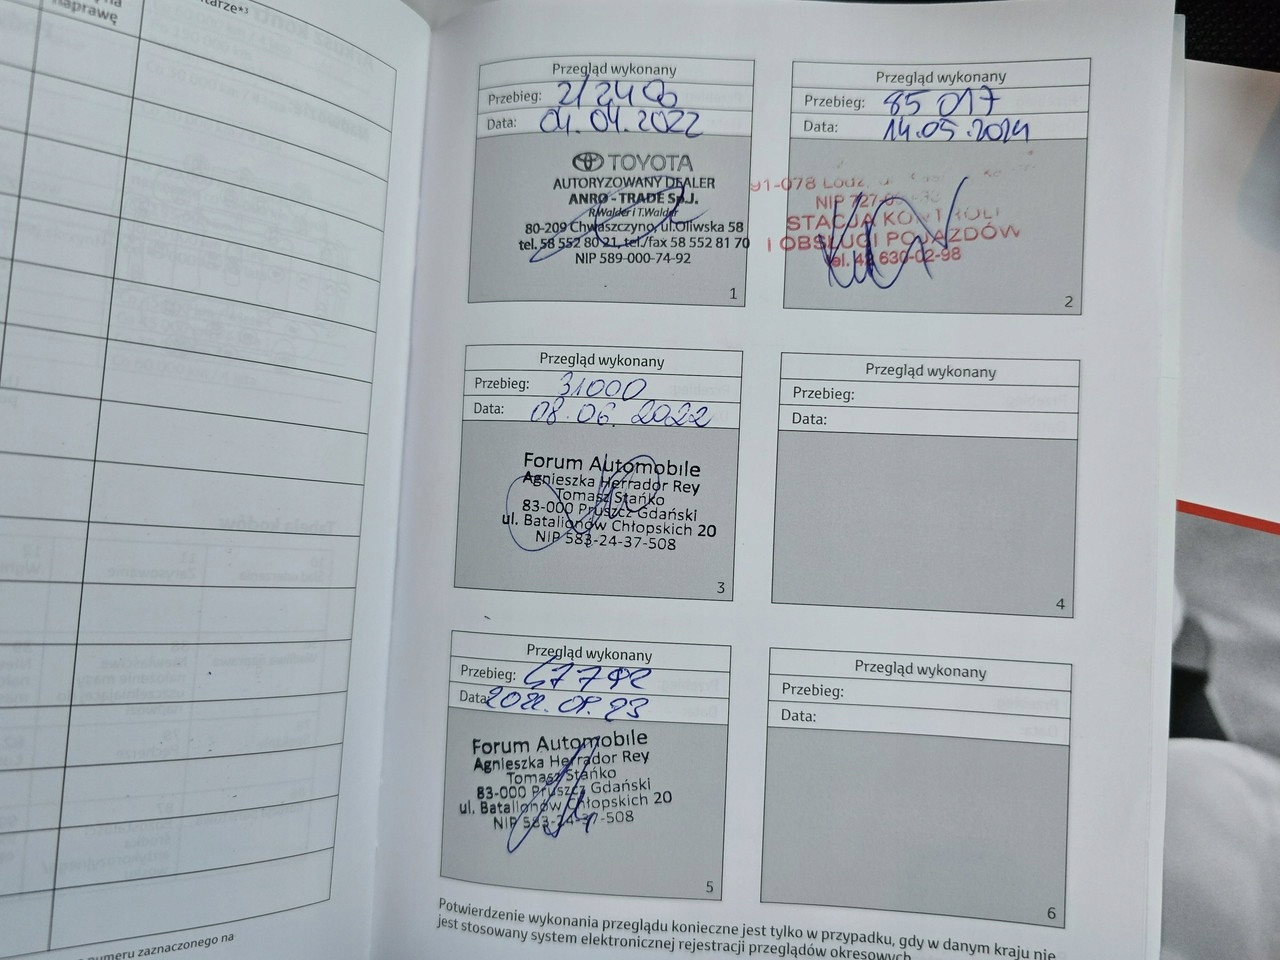 naprawę
Przegląd wykonany
Przebieg: 21240
Data: 04.04.2022
TOYOTA
AUTORYZOWANY DEALER
ANRO - TRADE Sp.J.
R.Walder i T.Walder
80-209 Chwaszczyno, ul.Oliwska 58
tel. 58 552 80 21, tel./fax 58 552 81 70
NIP 589-000-74-92
1
Przegląd wykonany
Przebieg: 85 017
Data: 14.05.2024
91-078 Łódź,
NIP 727-
STACJA KONTROLI
I OBSŁUGI POJAZDÓW
tel. 42 630-02-98
2
Przegląd wykonany
Przebieg: 31000
Data: 08.06.2022
Forum Automobile
Agnieszka Herrador Rey
Tomasz Stańko
83-000 Pruszcz Gdański
ul. Batalionów Chłopskich 20
NIP 583-24-37-508
3
Przegląd wykonany
Przebieg:
Data:
4
Przegląd wykonany
Przebieg:
Data:
Forum Automobile
Agnieszka Herrador Rey
Tomasz Stańko
83-000 Pruszcz Gdański
ul. Batalionów Chłopskich 20
NIP 583-24-37-508
5
Przegląd wykonany
Przebieg:
Data:
6
Potwierdzenie wykonania przeglądu konieczne jest tylko w przypadku, gdy w danym kraju nie
jest stosowany system elektronicznej rejestracji przeglądów okresowych
numeru zaznaczonego na